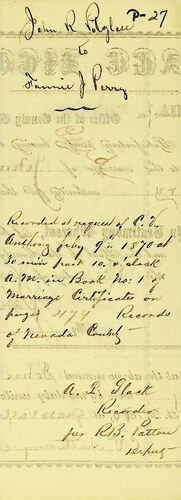 P-27
John R
to
Fannie J Perry
Paid
Recorded at request of C. F.
Anthony Feby 9th 1870 at
30 min past 10. o'clock
A.M. in Book No: 1 of
Marriage Certificates on
page 474 Records
of Nevada County
A. L. Slack
Recorder
per R.B. Patton
deputy